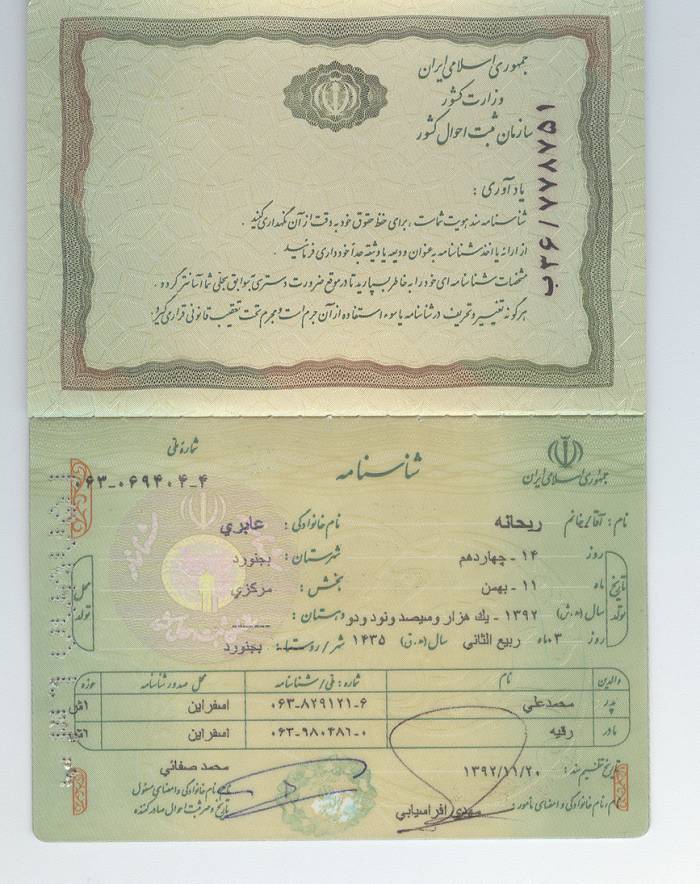 جمهوری اسلامی ایران
وزارت کشور
سازمان ثبت احوال کشور
ب۳۶/۷۷۸۷۵۱
یادآوری :
شناسنامه سند هویت شماست ، برای حفظ حقوق خود به دقت از آن نگهداری کنید .
از ارائه یا اخذ شناسنامه به عنوان ودیعه یا وثیقه جداً خودداری فرمائید .
مشخصات شناسنامه ای خود را به خاطر بسپارید تا در موقع ضرورت دسترسی به سوابق سجلی شما آسانتر گردد .
هرگونه تغییر و تحریف در شناسنامه یا سوء استفاده از آن جرم است و مجرم تحت تعقیب قانونی قرار می گیرد .
جمهوری اسلامی ایران
شناسنامه
شماره ملی
۰۶۳-۰۶۹۴۰۴-۴
نام : آقا/خانم ریحانه نام خانوادگی : عابری
تاریخ تولد
روز ۱۴ - چهاردهم شهرستان : بجنورد
ماه ۱۱ - بهمن بخش : مرکزی
سال (ه.ش) ۱۳۹۲ - یك هزار وسیصد ونود ودو دهستان : --------
روز ۳ ماه ربیع الثانی سال (ه.ق) ۱۴۳۵ شهر/روستا : بجنورد
محل تولد
والدین نام شماره : ملی/شناسنامه محل صدور شناسنامه حوزه
پدر محمدعلی ۰۶۳-۸۲۹۱۲۱-۶ اسفراین
مادر رقیه ۰۶۳-۹۸۰۴۸۶-۰ اسفراین
تاریخ تنظیم سند : ۱۳۹۲/۱۱/۲۰ محمد صفائی
نام ، نام خانوادگی و امضای مأمور : مهدی افراسیابی
نام ، نام خانوادگی و امضای مسئول
تاریخ و مهر ثبت احوال صادر کننده